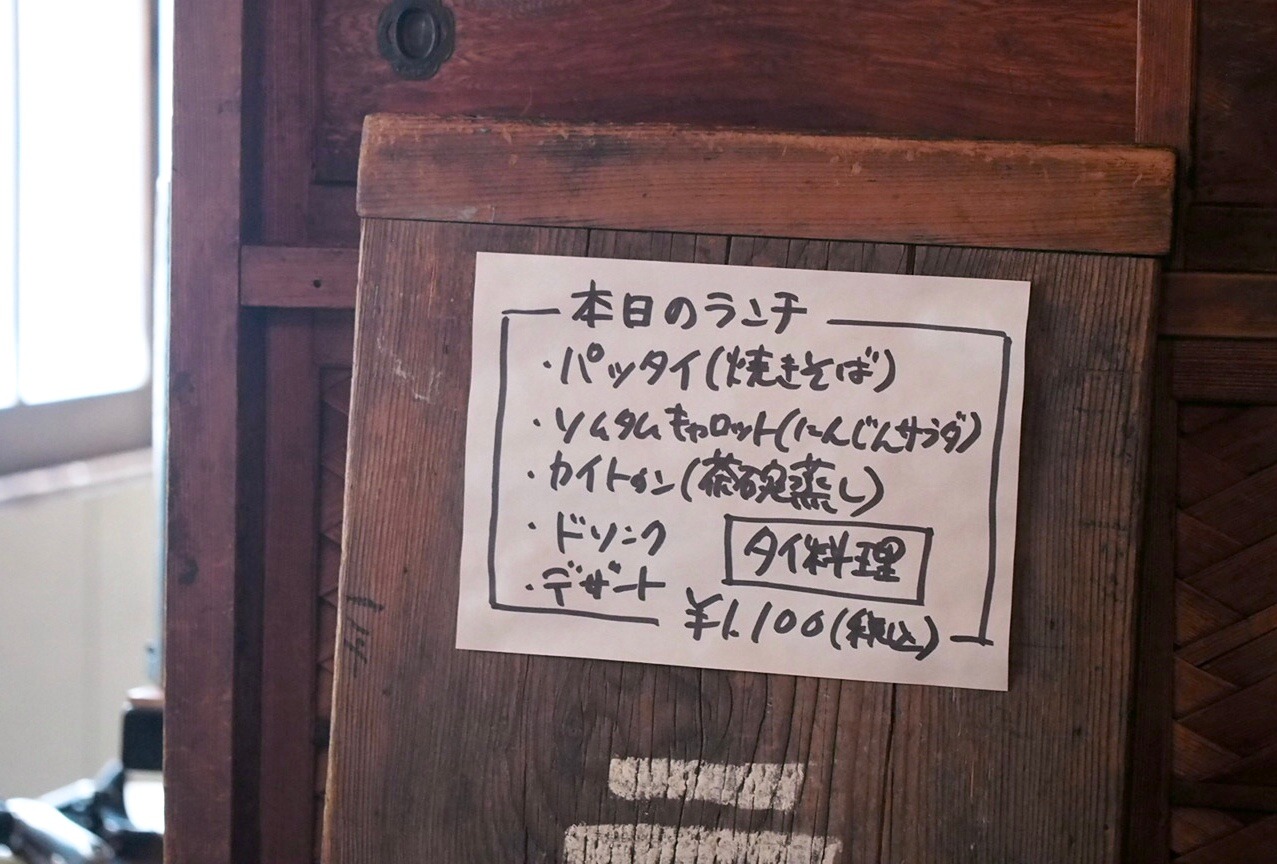 本日のランチ
・パッタイ(焼きそば)
・ソムタムキャロット(にんじんサラダ)
・カイトゥン(茶碗蒸し)
・ドリンク
タイ料理
・デザート
¥1.100(税込)